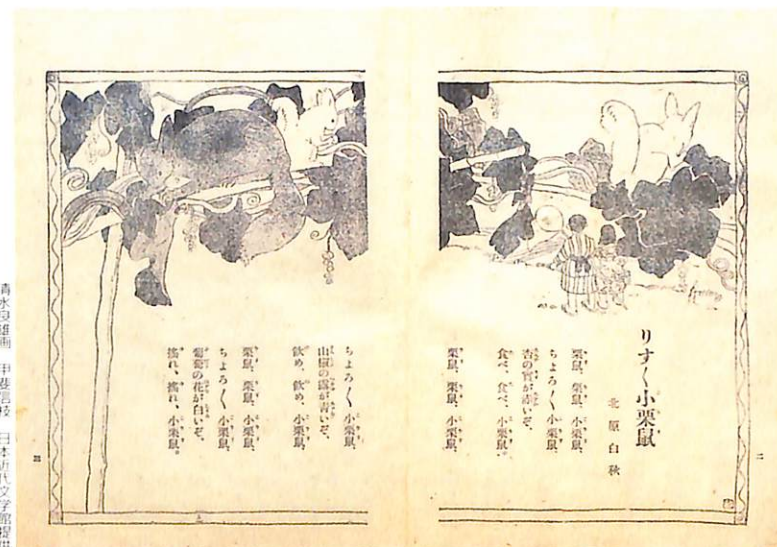 りす〳〵小栗鼠
北原白秋
栗鼠、栗鼠、小栗鼠、
ちよろ〳〵小栗鼠、
杏の實が赤いぞ、
食べ、食べ、小栗鼠。
栗鼠、栗鼠、小栗鼠、
ちよろ〳〵小栗鼠、
山椒の露が青いぞ、
飮め、飮め、小栗鼠、
栗鼠、栗鼠、小栗鼠、
ちよろ〳〵小栗鼠、
葡萄の花が白いぞ、
搖れ、搖れ、小栗鼠。
二
三
清水良雄画 甲斐信枝 日本近代文学館提供